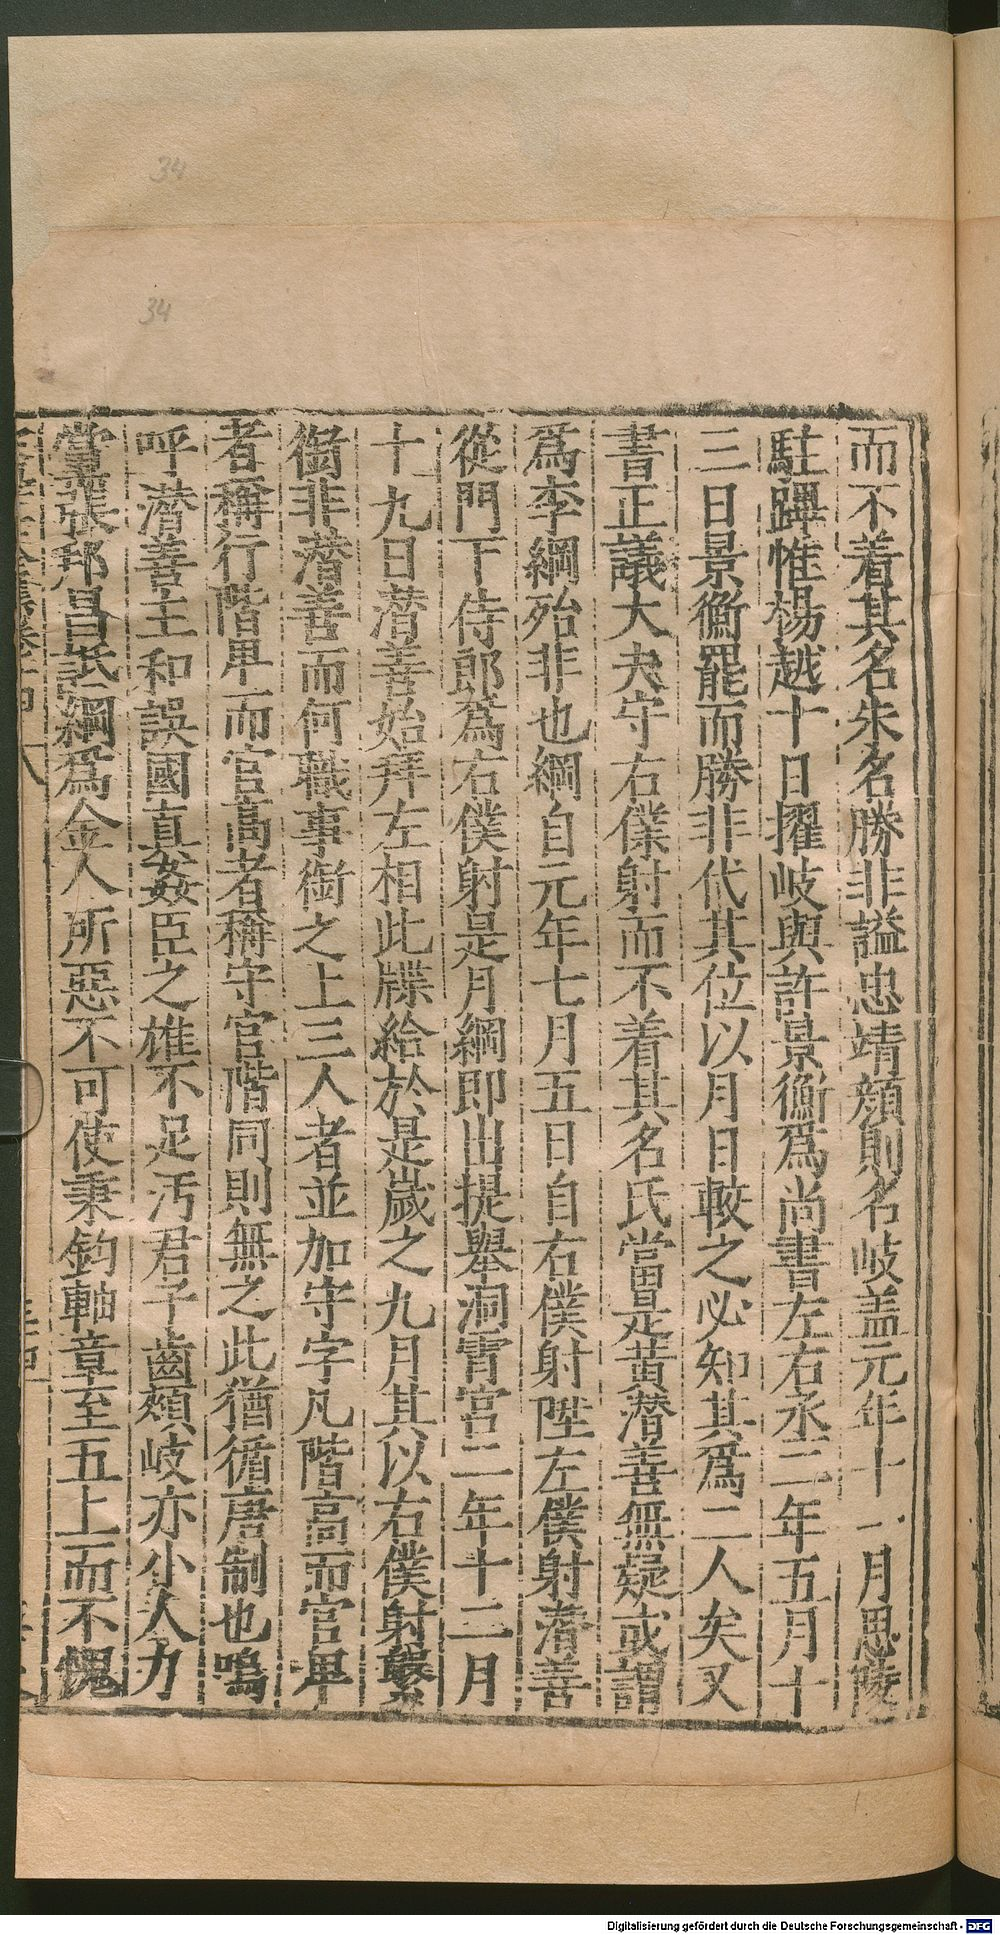 而不着其名朱名勝非謚忠靖顔則名岐盖元年十一月思陵
駐蹕惟楊越十日擢岐與許景衡爲尚書左右丞二年五月十
三日景衡罷而勝非代其位以月日較之必知其爲二人矣又
書正議大夫守右僕射而不着其名氏當是黄潜善無疑或謂
爲李綱殆非也綱自元年七月五日自右僕射陞左僕射潜善
從門下侍郎爲右僕射是月綱即出提舉洞霄宫二年十二月
十九日潜善始拜左相此牒給於是歲之九月其以右僕射繫
銜非潜善而何職事銜之上三人者並加守字凡階高而官卑
者稱行階卑而官高者稱守官階同則無之此猶循唐制也嗚
呼潜善主和誤國真姦臣之雄不足汚君子齒頰岐亦小人力
黨張邦昌詆綱爲金人所惡不可使秉鈞軸章至五上而不愧
34
34
Digitalisierung gefördert durch die Deutsche Forschungsgemeinschaft - DFG